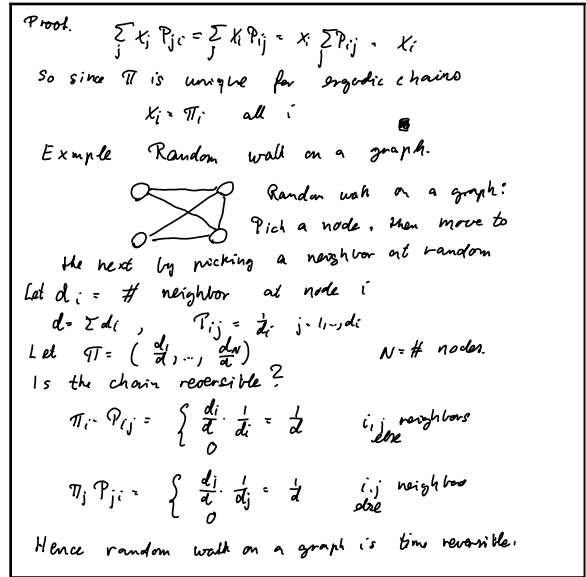 Proof. ∑_j x_j P_ji = ∑_j x_i P_ij = x_i ∑_j P_ij = x_i
So since π is unique for ergodic chains
x_i = π_i all i
Exmple Random walk on a graph.
Random walk on a graph:
Pick a node, then move to
the next by picking a neighbor at random
Let d_i = # neighbor at node i
d = ∑ d_i , P_ij = 1/d_i j = 1,..,d_i
Let π = ( d_1/d , ..., d_N/d ) N = # nodes.
Is the chain reversible?
π_i · P_ij = { d_i/d · 1/d_i = 1/d i,j neighbors
0 else
π_j P_ji = { d_j/d · 1/d_j = 1/d i,j neighbor
0 else
Hence random walk on a graph is time reversible.